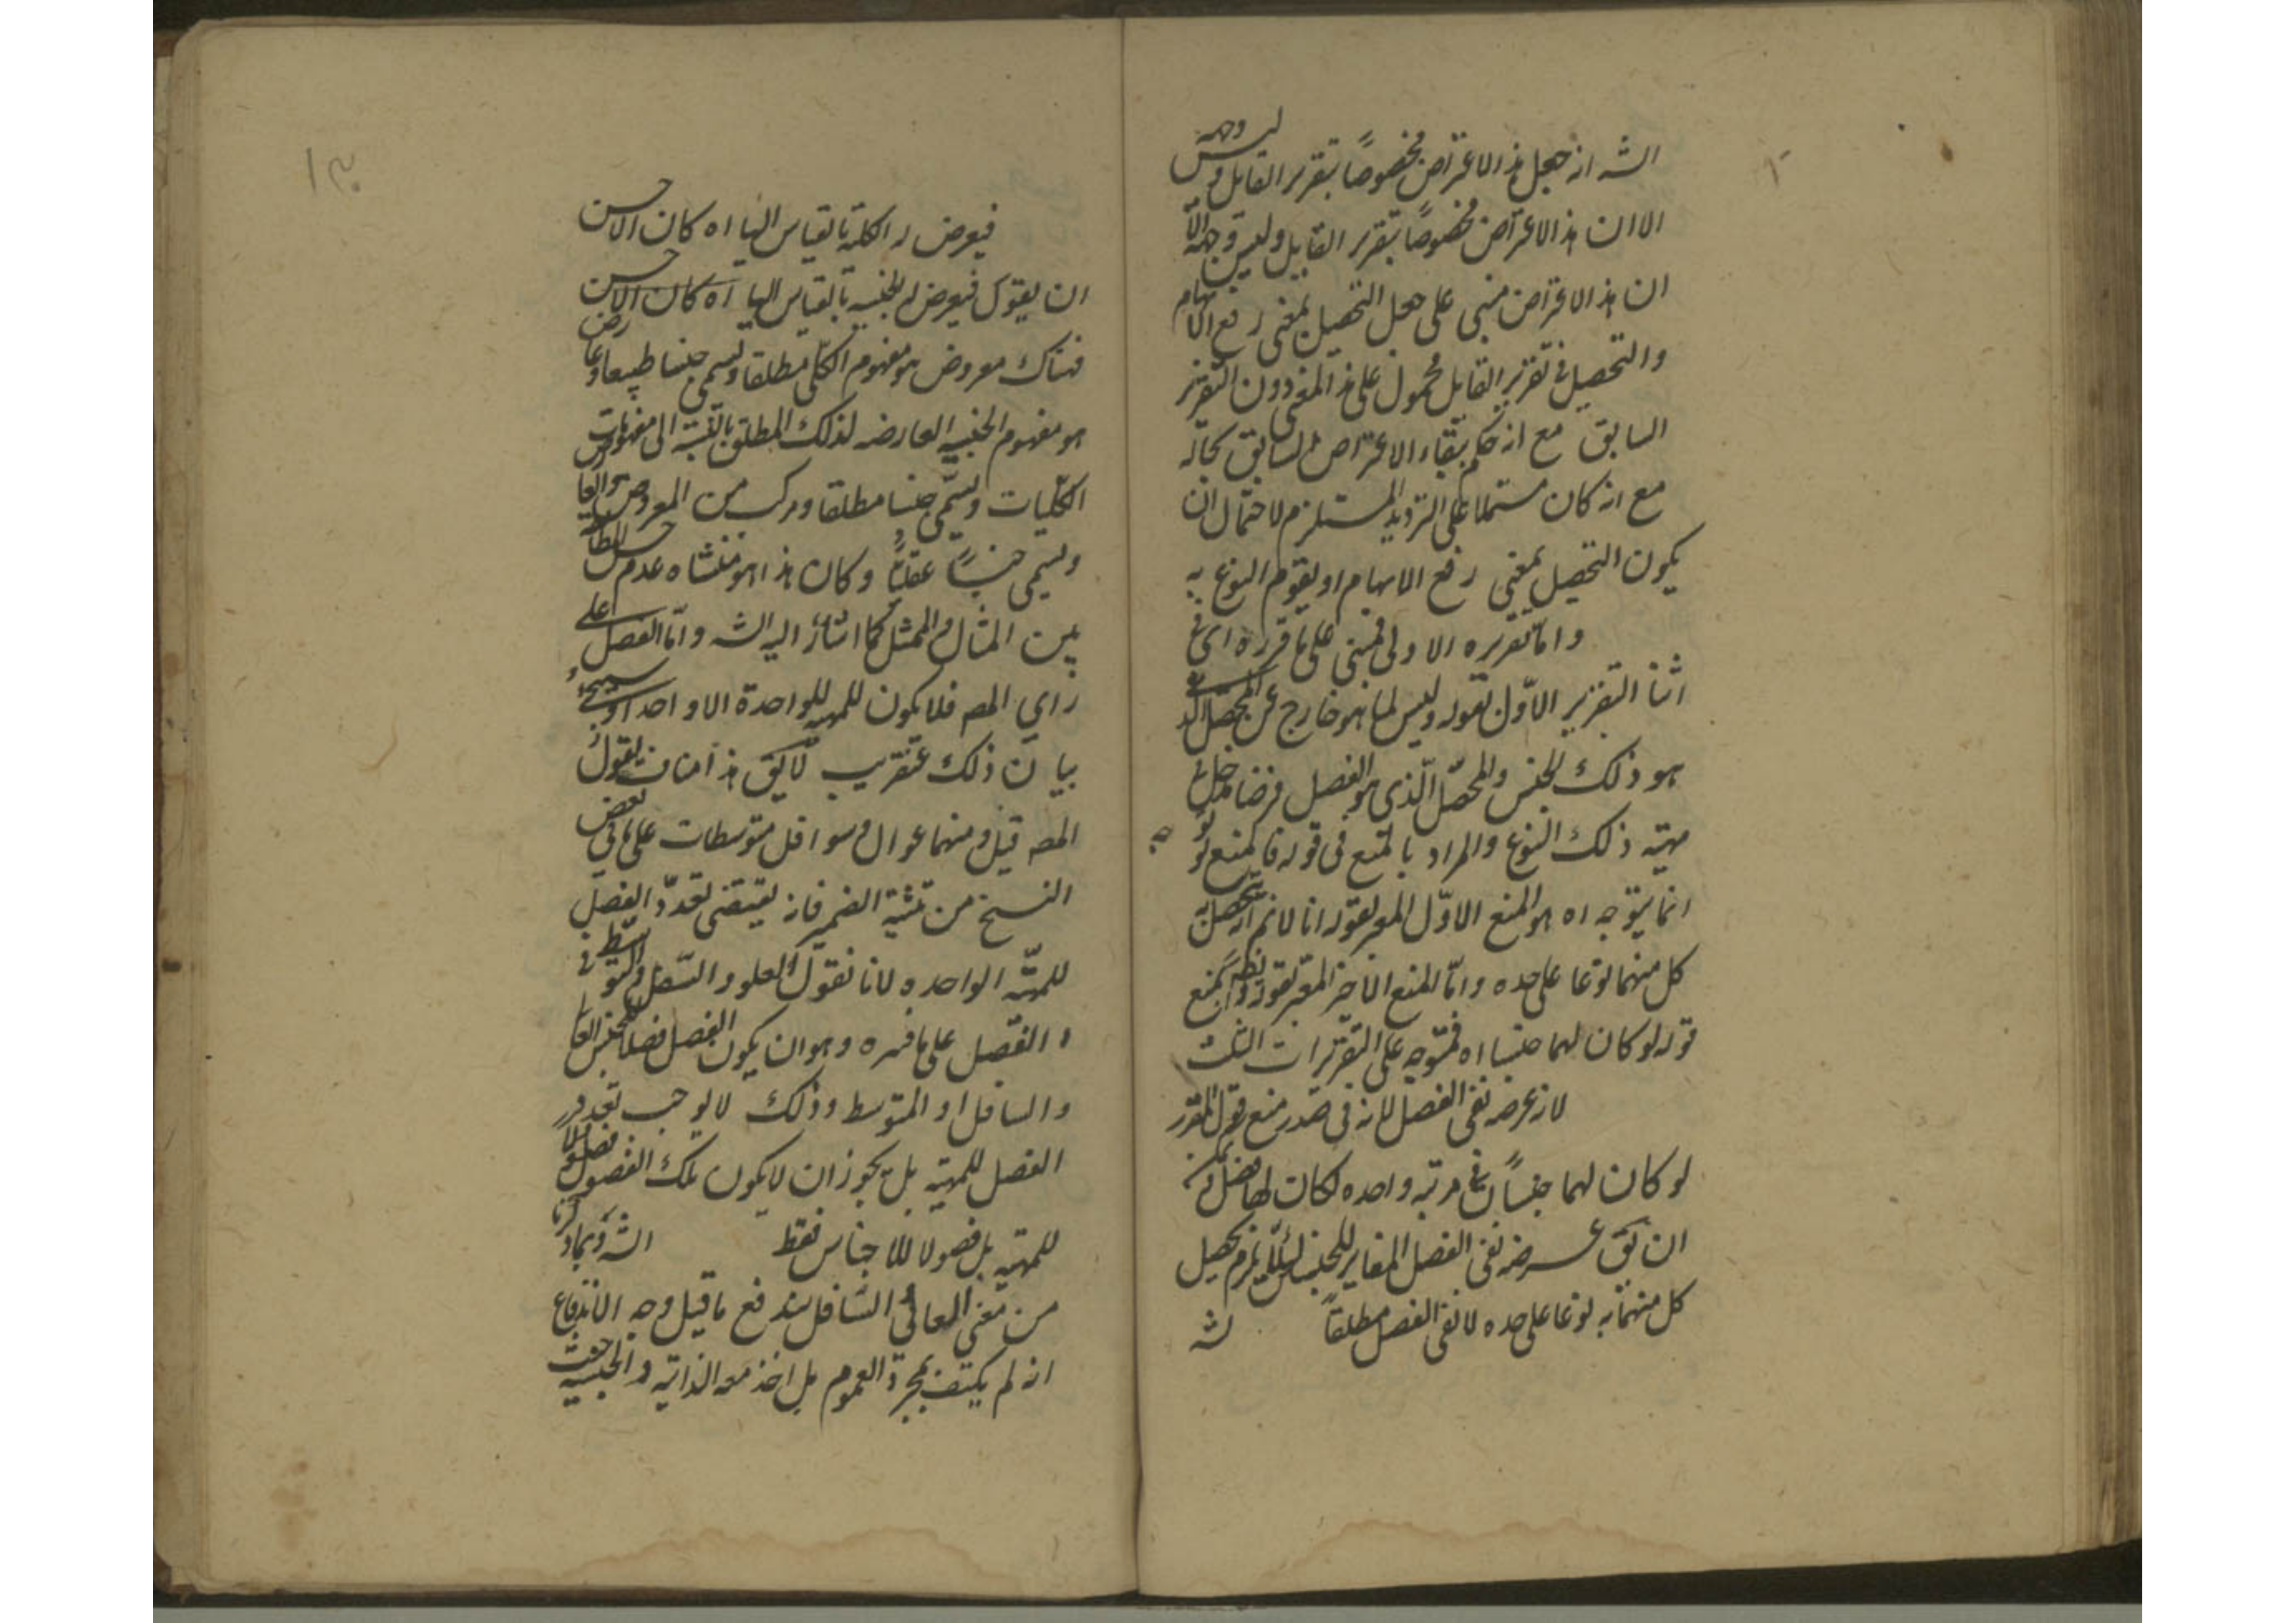 الشه انه جعل هذا الاعتراض مخصوصًا بتقرير القايل وليس وجهه
الا ان هذا الاعتراض مخصوصًا بتقرير القايل وليس وجهه الّا
ان هذا الاعتراض مبنى على جعل التحصيل بمعنى رفع الابهام
والتحصيل فى تقرير القايل محمول على هذا المعنى دون التقرير
السابق مع انه حكم ببقاء الاعتراض السابق بحاله
مع انه كان مشتملا على الترديد المستلزم لاحتمال ان
يكون التحصيل بمعنى رفع الابهام او يقوم النوع به
وامّا تقريره الاولى فمبنى على ما قرره اى فى
اثنا التقرير الاوّل بقوله وليس لما هو خارج عن المحصّل الذى
هو ذلك الجنس والمحصّل الّذى هو الفصل فرضا مدخل فى
مهيّة ذلك النوع والمراد بالمنع فى قوله فالمنع لو
انما يتوجه اه هو المنع الاوّل المعبر بقوله انا لا نم انه يتحصل به
كل منهما نوعا على حده وامّا المنع الاخير المعبّر بقوله وايضا نمنع
قوله لو كان لهما جنسا اه فمتوجه على التقريرات الثلث
لان غرضه نفى الفصل لانه فى صدر منع قول المقرر
لو كان لهما جنسًا فى مرتبه واحده لكان لها فصل ويمكن
ان يق غرضه نفى الفصل المغاير للجنسين لئلّا يلزم تحصيل
كل منهما به نوعا على حده لا نفى الفصل مطلقاً الشه
١٣٠
فيعرض له الكلية بالقياس اليها اه كان الاحسن
ان يقول فيعرض له الجنسيه بالقياس اليها اه كان الاحسن
فهناك معروض هو مفهوم الكلّى مطلقا ويسمى جنسا طبيعيا وعارض
هو مفهوم الجنسيه العارضه لذلك المطلق بالنسبة الى مفهومات
الكلّيات ويسمّى جنسا مطلقا ومركب من المعروض والعارض
ويسمى جنسًا عقليًّا وكان هذا هو منشاه عدم
بين المثال والممثل كما اشار اليه الشه وامّا الفصل على
راى المصه فلا يكون للمهيه الواحدة الا واحدا وسيجئ
بيان ذلك عنقريب لا يق هذا مناف لقول
المصه قيل ومنهما عوال وسوافل ومتوسطات على ما فى بعض
النسخ من تثنية الضمير فانه يقتضى تعدّد الفصل
للمهيّه الواحده لانا نقول العلو والسّفل والتوسّط فى
الفصل على ما فسره وهو ان يكون الفصل فصلا للجنس العالى
والسافل او المتوسط وذلك لا يوجب تعدد
الفصل للمهيّه بل يجوز ان لا يكون تلك الفصول فصولا
للمهيّه بل فصولا للاجناس فقط الشه وبما ذكرنا
من معنى العالى والسّافل يندفع ما قيل وجه الاندفاع
انه لم يكتف بمجرّد العموم بل اخذ معه الذاتيه والجنسيه